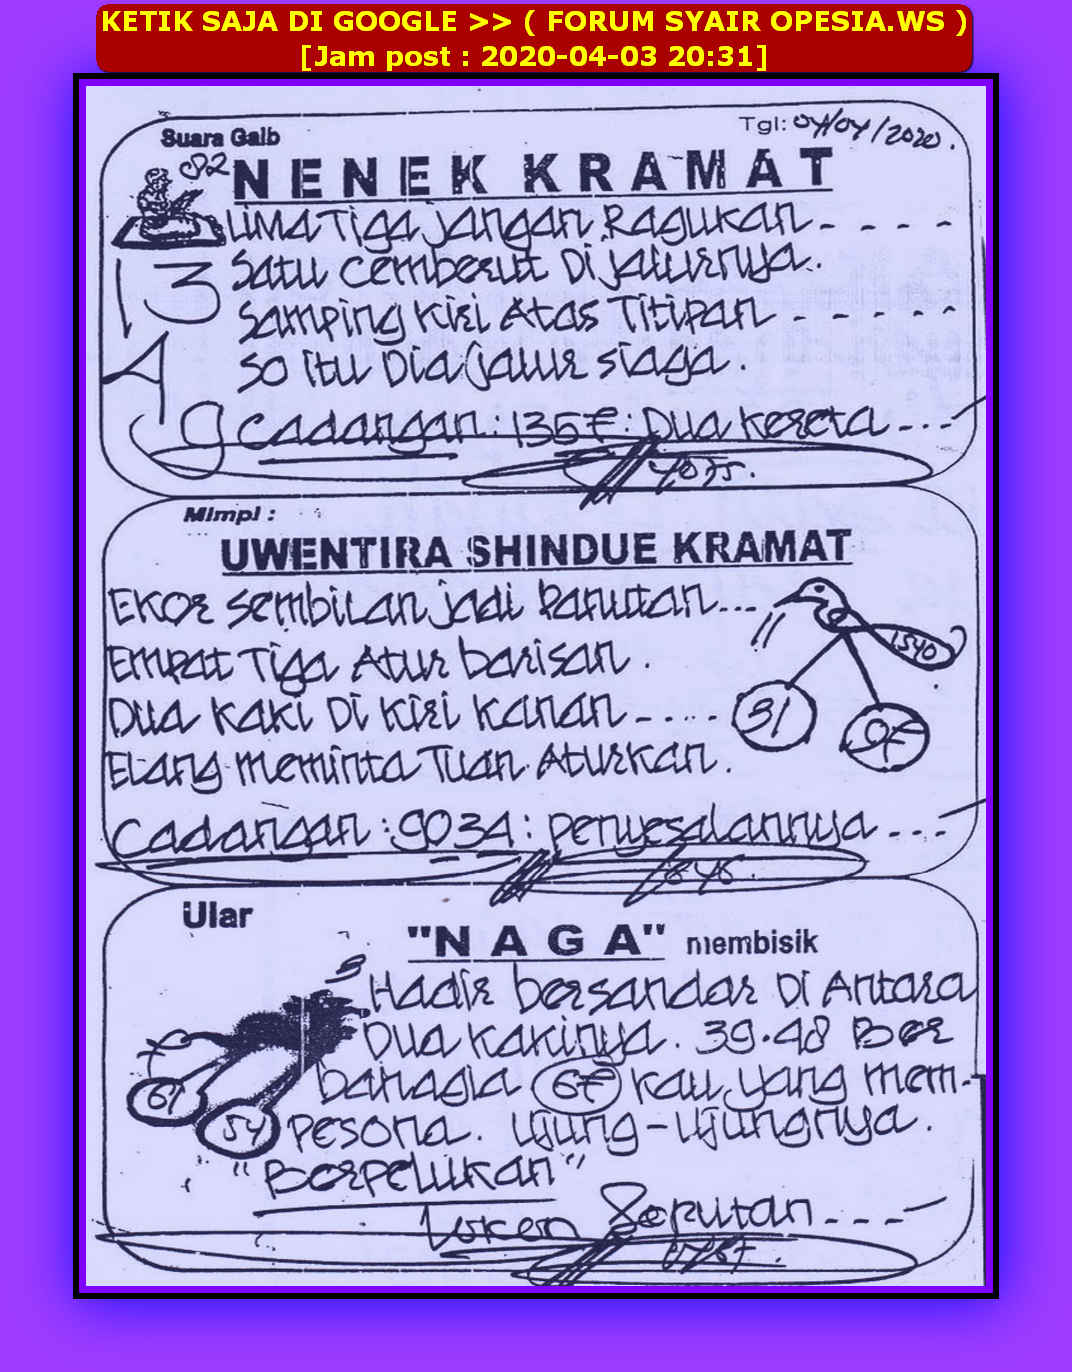 KETIK SAJA DI GOOGLE >> ( FORUM SYAIR OPESIA.WS )
[Jam post : 2020-04-03 20:31]
Suara Gaib
Tgl: 04/04/2020.
82
NENEK KRAMAT
LIMA TIGA JANGAN RAGUKAN - - - -
13
SATU CEMBERUT DI JALURNYA..
SAMPING KIRI ATAS TITIPAN - - - - -
A
SO ITU DIA JALUR SIAGA.
9
CADANGAN : 1357 : DUA KERETA - - -
4075.
Mimpi :
UWENTIRA SHINDUE KRAMAT
EKOR SEMBILAN JADI PANUTAN...
EMPAT TIGA ATUR BARISAN.
1540
DUA KAKI DI KIRI KANAN - . . . .
31
07
ELANG MEMINTA TUAN ATURKAN.
CADANGAN : 9034 : PENYESALANNYA - - -
1848.
Ular
"NAGA" membisik
HADIR BERSANDAR DI ANTARA
DUA KAKINYA. 39.48 BER
BAHAGIA 67 KAU YANG MEM-
61
54
PESONA. UJUNG-UJUNGNYA.
"BERPELUKAN"
SEPUTAN - - -